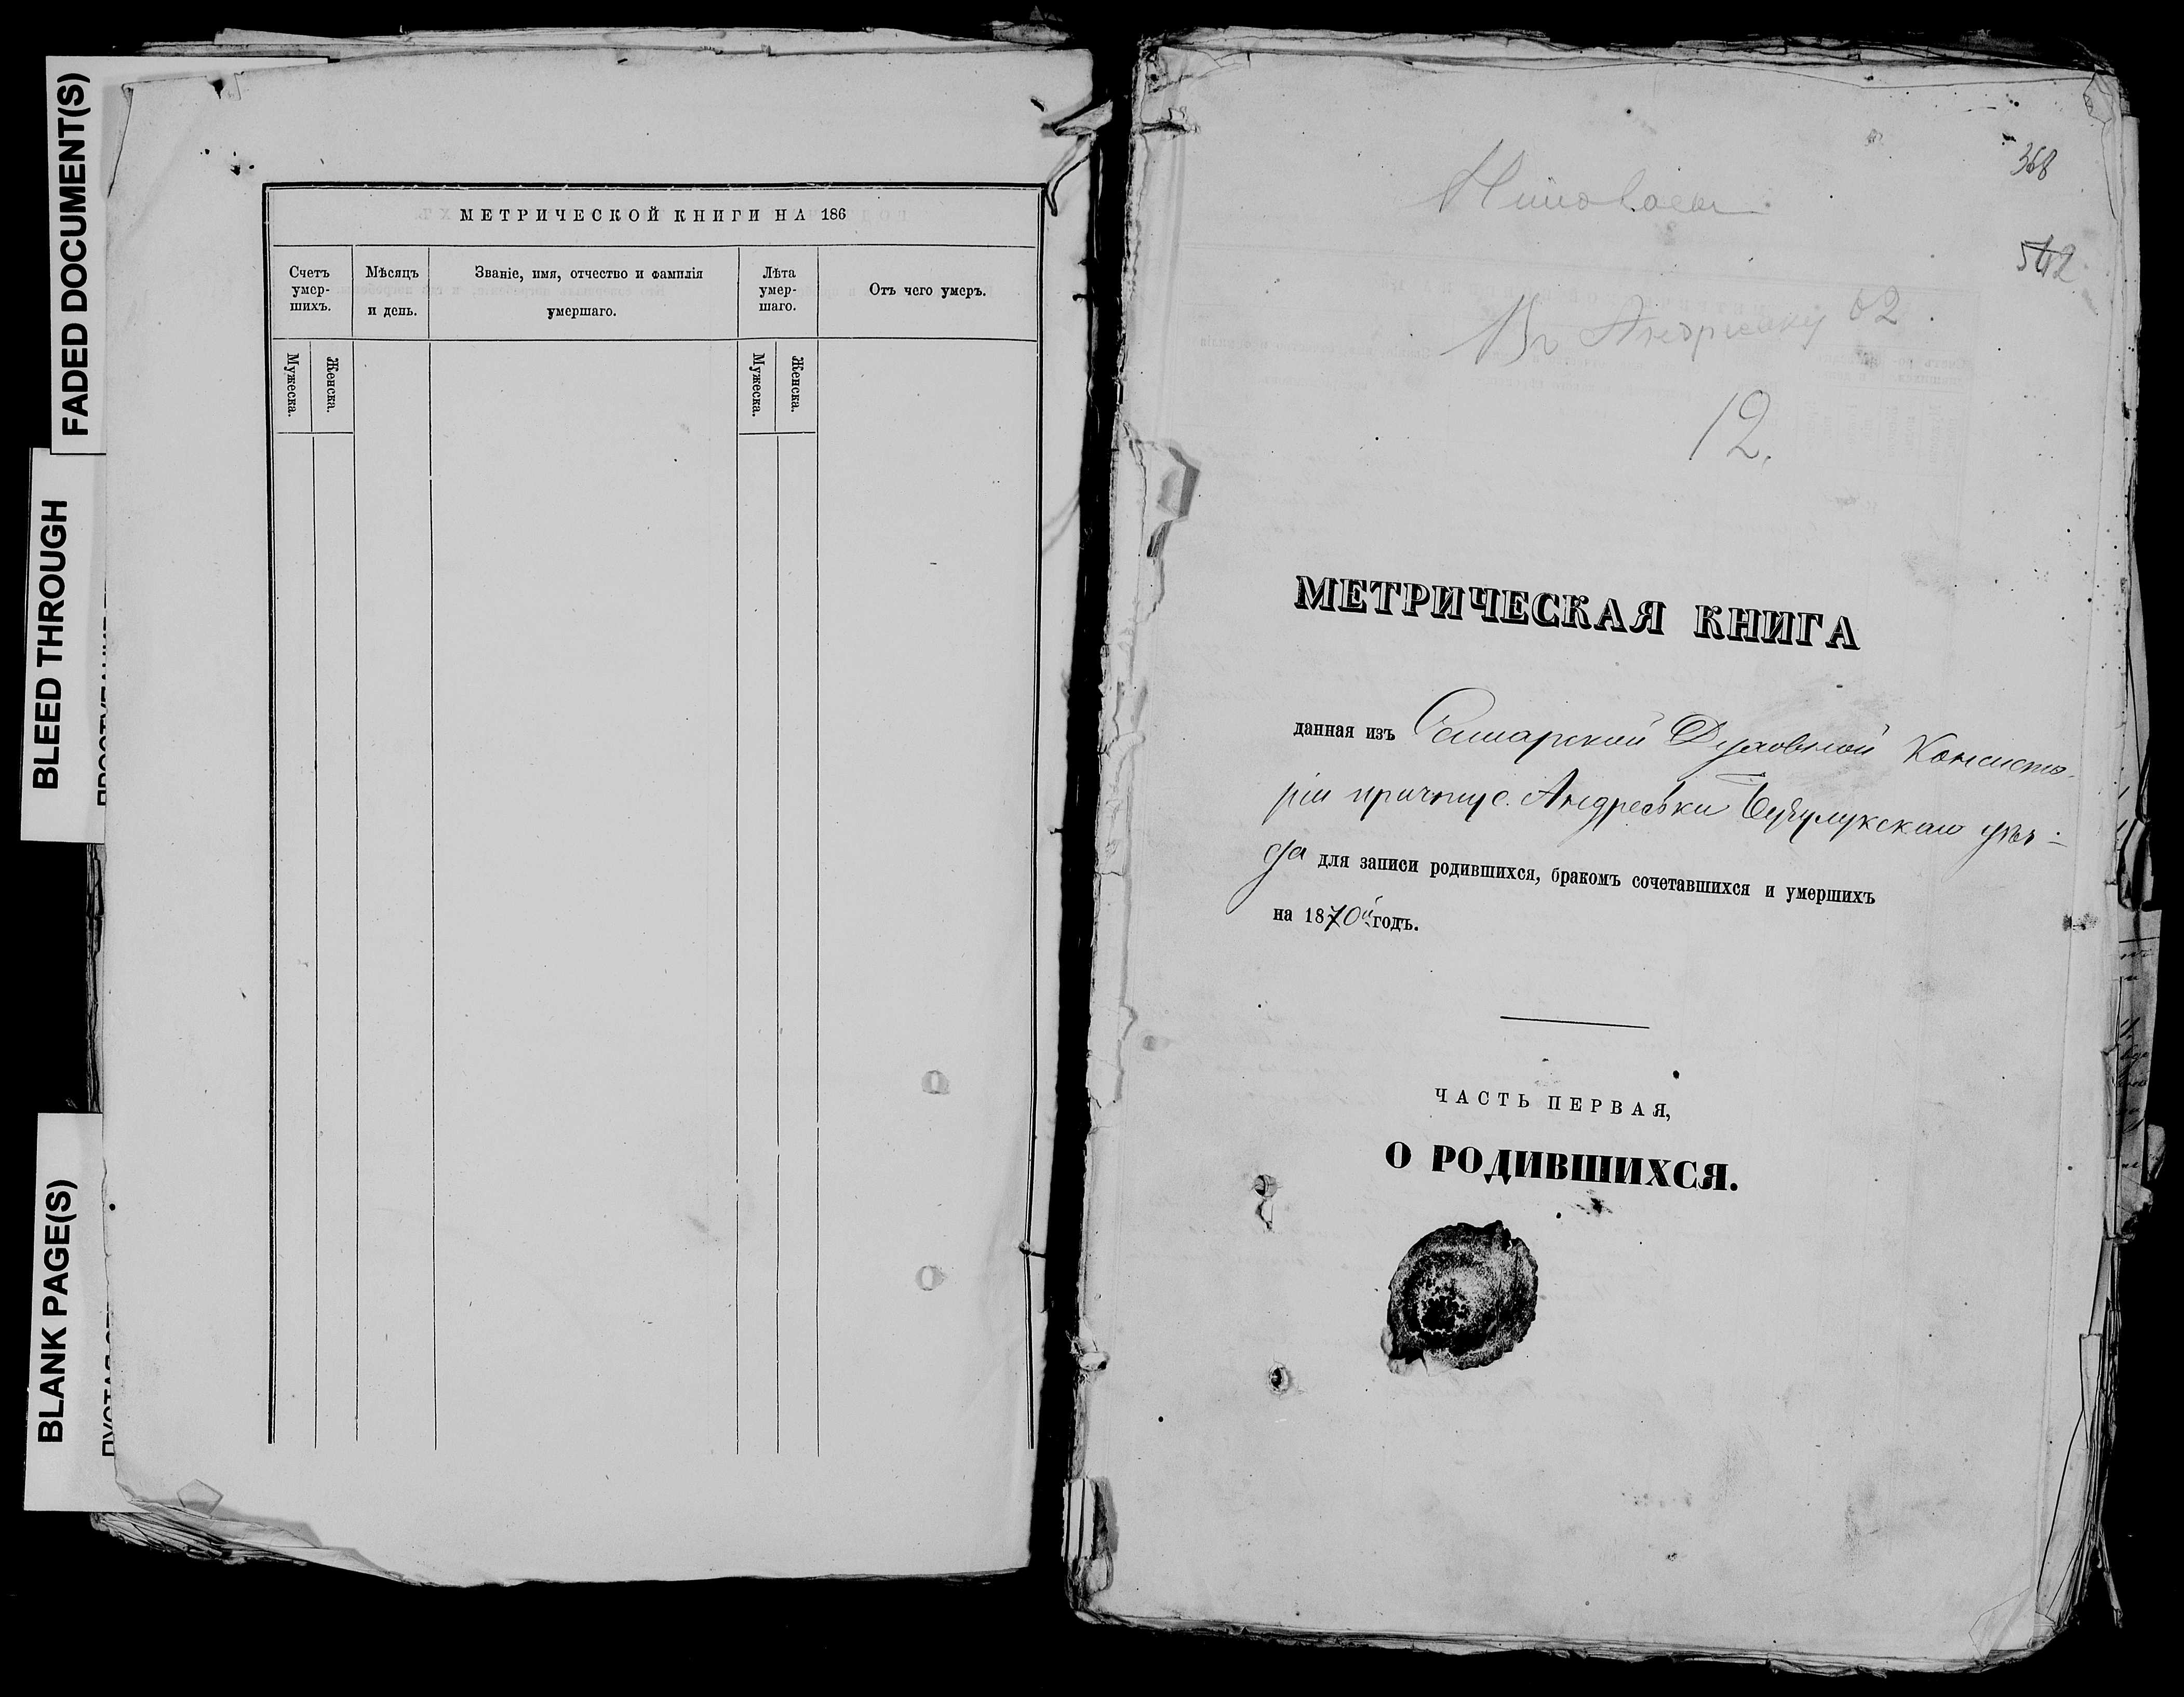 FADED DOCUMENT(S)
BLEED THROUGH
BLANK PAGE(S)
МЕТРИЧЕСКОЙ КНИГИ НА 186
Счетъ умер-шихъ.
Мѣсяцъ и день.
Званіе, имя, отчество и фамилія умершаго.
Лѣта умер-шаго.
Отъ чего умеръ.
Мужеска.
Женска.
Мужеска.
Женска.
368
542
Въ Андреевку 62
12.
МЕТРИЧЕСКАЯ КНИГА
данная изъ Самарской Духовной Консисто-
ріи причту с. Андреевки Бузулукскаго уѣз-
да для записи родившихся, бракомъ сочетавшихся и умершихъ
на 1870й годъ.
ЧАСТЬ ПЕРВАЯ,
О РОДИВШИХСЯ.